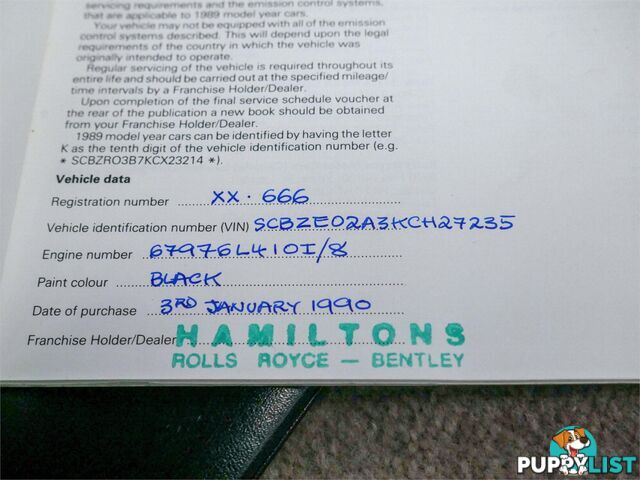 servicing requirements and the emission control systems,
that are applicable to 1989 model year cars.
Your vehicle may not be equipped with all of the emission
control systems described. This will depend upon the legal
requirements of the country in which the vehicle was
originally intended to operate.
Regular servicing of the vehicle is required throughout its
entire life and should be carried out at the specified mileage/
time intervals by a Franchise Holder/Dealer.
Upon completion of the final service schedule voucher at
the rear of the publication a new book should be obtained
from your Franchise Holder/Dealer.
1989 model year cars can be identified by having the letter
K as the tenth digit of the vehicle identification number (e.g.
* SCBZRO3B7KCX23214 *).
Vehicle data
Registration number XX · 666
Vehicle identification number (VIN) SCBZE02A3KCH27235
Engine number 67976L410I/8
Paint colour BLACK
Date of purchase 3RD JANUARY 1990
Franchise Holder/Dealer HAMILTONS
ROLLS ROYCE — BENTLEY
PUPPYLIST